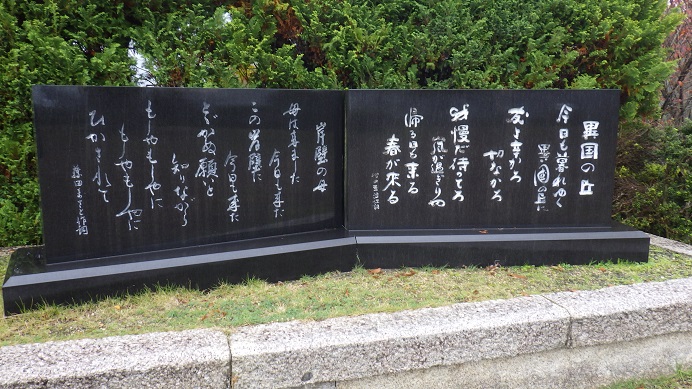 異国の丘
今日も暮れゆく
異国の丘に
友よ辛かろ
切なかろ
我慢だ待ってろ
嵐が過ぎりゃ
帰る日も来る
春が来る
岸壁の母
母は来ました
今日も来た
この岸壁に
今日も来た
とどかぬ願いと
知りながら
もしやもしやに
もしやもしやに
ひかされて
藤田まさと作詞